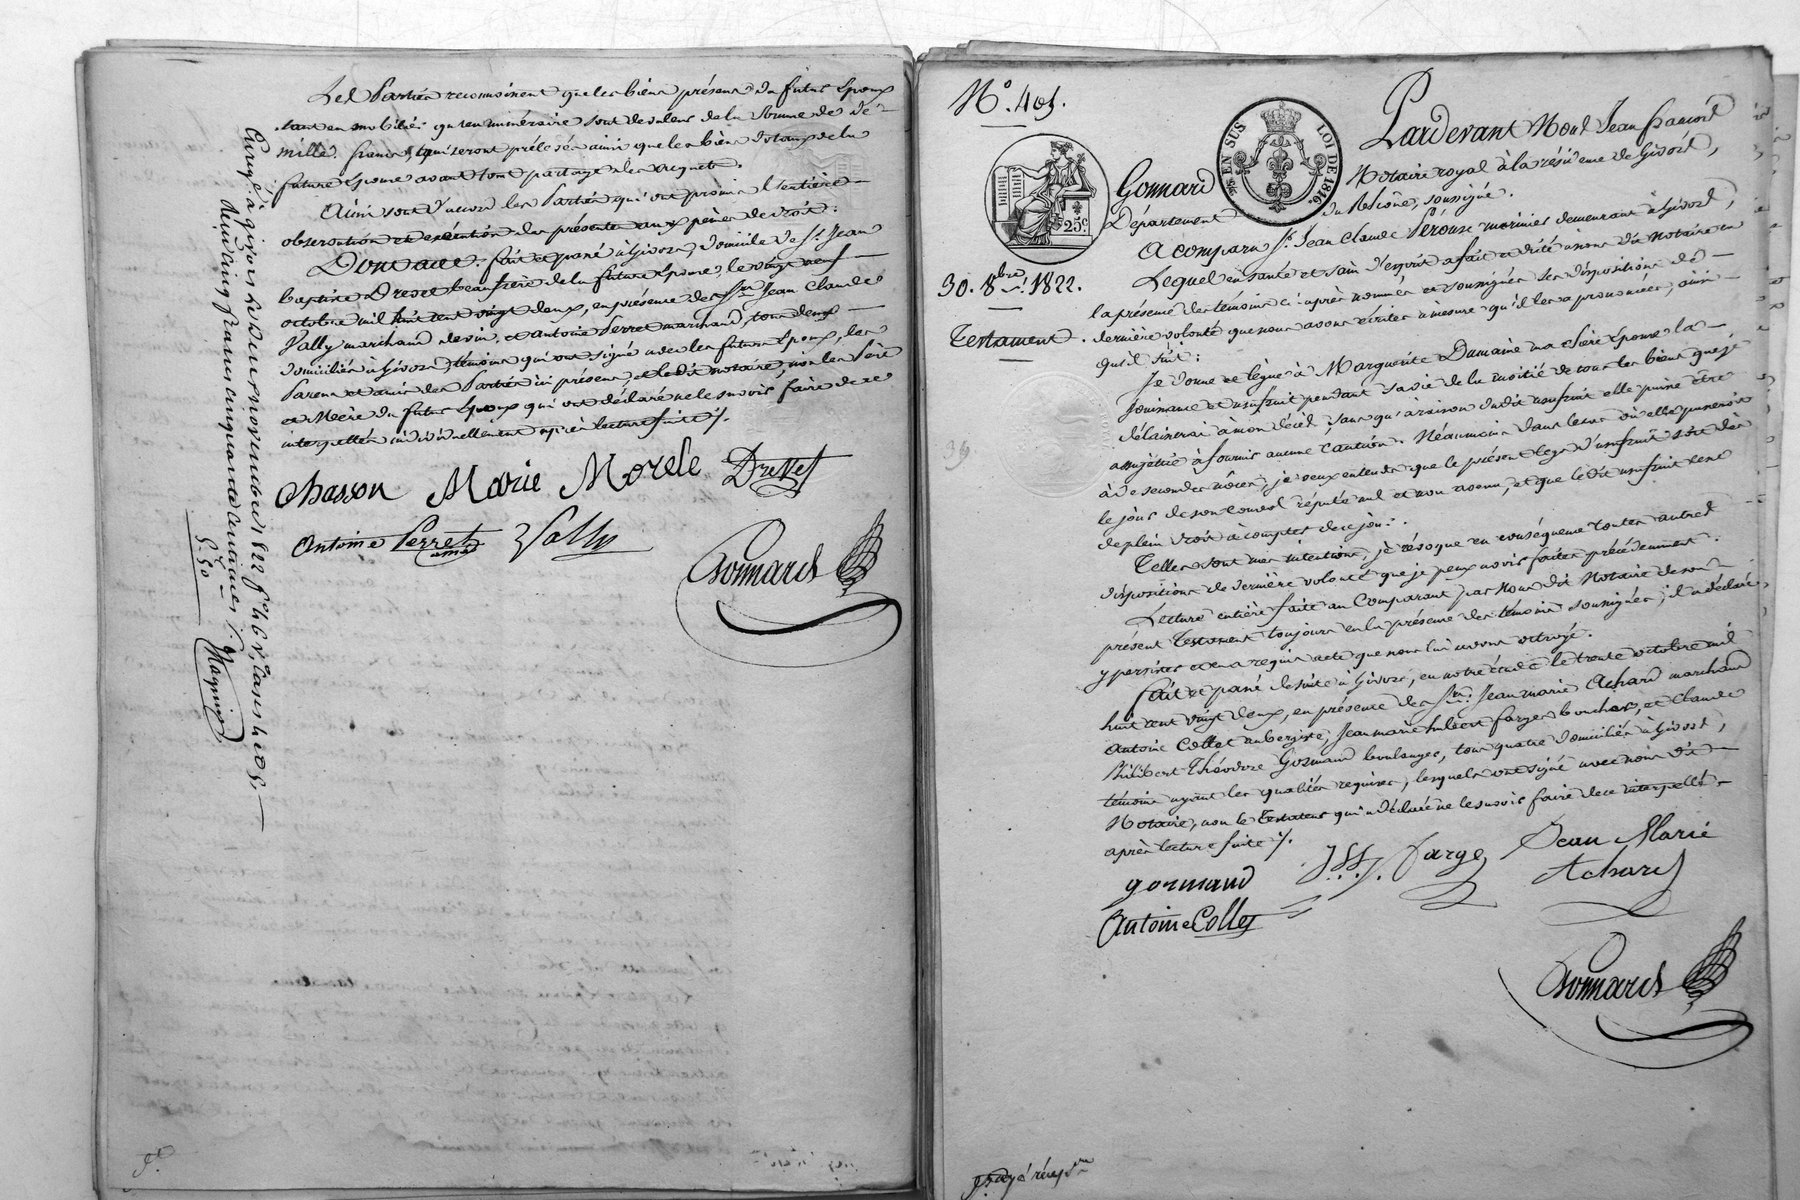 Les Parties reconnoissent que les biens présens du futur Epoux
tant en mobilier qu'en numéraire sont de valeur de la somme de
mille francs, qui seront prélevés ainsi que les biens de la
future Epouse avant tout partage des acquets.
Ainsi sont d'accord les Parties qui ont promis l'entière
observation et exécution des présentes aux peines de droit:
Dont acte. fait et passé à Givors, domicile de Sr. Jean
baptiste Drevet beaufrère de la future Epouse, le vingt neuf
octobre mil huit cent vingt deux, en présence des Srs. Jean Claude
Vally marchand de vin, et Antoine Perret marchand, tous deux
domiciliés à Givors, témoins qui ont signé avec les futurs Epoux, les
Parens et amis des Parties ici présens, et le dit notaire, non les Père
et Mère du futur Epoux qui ont déclaré ne le savoir faire de ce
interpellés individuellement après lecture faite ./.
Chasson Marie Morele Drevet
Antoine Perret Vally
Gonnard
Enregé. à givors le deux novembre 1822 fo.
reçu cinq francs cinquante centimes ./.
5.50
N°. 405.
EN SUS LOI DE 1816.
25c
Gonnard
Département
30. 8bre. 1822.
Testament.
Pardevant Nous Jean françois
Notaire royal à la résidence de Givors,
du Rhône, soussigné.
A comparu Sr. Jean Claude Pérouse marinier demeurant à Givors,
Lequel en santé et sain d'esprit a fait et dicté à nous dit Notaire en
la présence des témoins ci après nommés et soussignés ses dispositions de
dernière volonté que nous avons écrites à mesure qu'il les a prononcées, ainsi
qu'il suit:
Je donne et lègue à Marguerite Damaine ma chère Epouse la
jouissance et usufruit pendant sa vie de la moitié de tous les biens que je
délaisserai à mon décès, sans qu'à raison du dit usufruit elle puisse être
assujettie à fournir aucune caution. Néaumoins dans le cas où elle passeroit
à de secondes nôces, je veux entends que le présent legs d'usufruit soit dès
le jour de son convol réputé nul et non avenu, et que le dit usufruit cesse
de plein droit à compter de ce jour.
Telles sont mes intentions, je révoque en conséquence toutes autres
dispositions de dernière volonté que je peux avoir faites précédemment.
Lecture entière faite au Comparant par Nous dit Notaire de son
présent Testament toujours en la présence des témoins soussignés, il a déclaré
y persister et en a requis acte que nous lui avons octroyé.
fait et passé de suite à Givors, en notre étude le trente octobre mil
huit cent vingt deux, en présence des Srs. Jean marie Achard marchand
Antoine Collet aubergiste, Jean marie hubert farge boucher, et Claude
Philibert Théodore Gormand boulanger, tous quatre domiciliés à Givors,
témoins ayant les qualités requises, lesquels ont signé avec nous dit
Notaire, non le Testateur qui a déclaré ne le savoir faire de ce interpellé
après lecture faite ./.
gormand farge Jean Marie
Achard
Antoine Collet
Gonnard